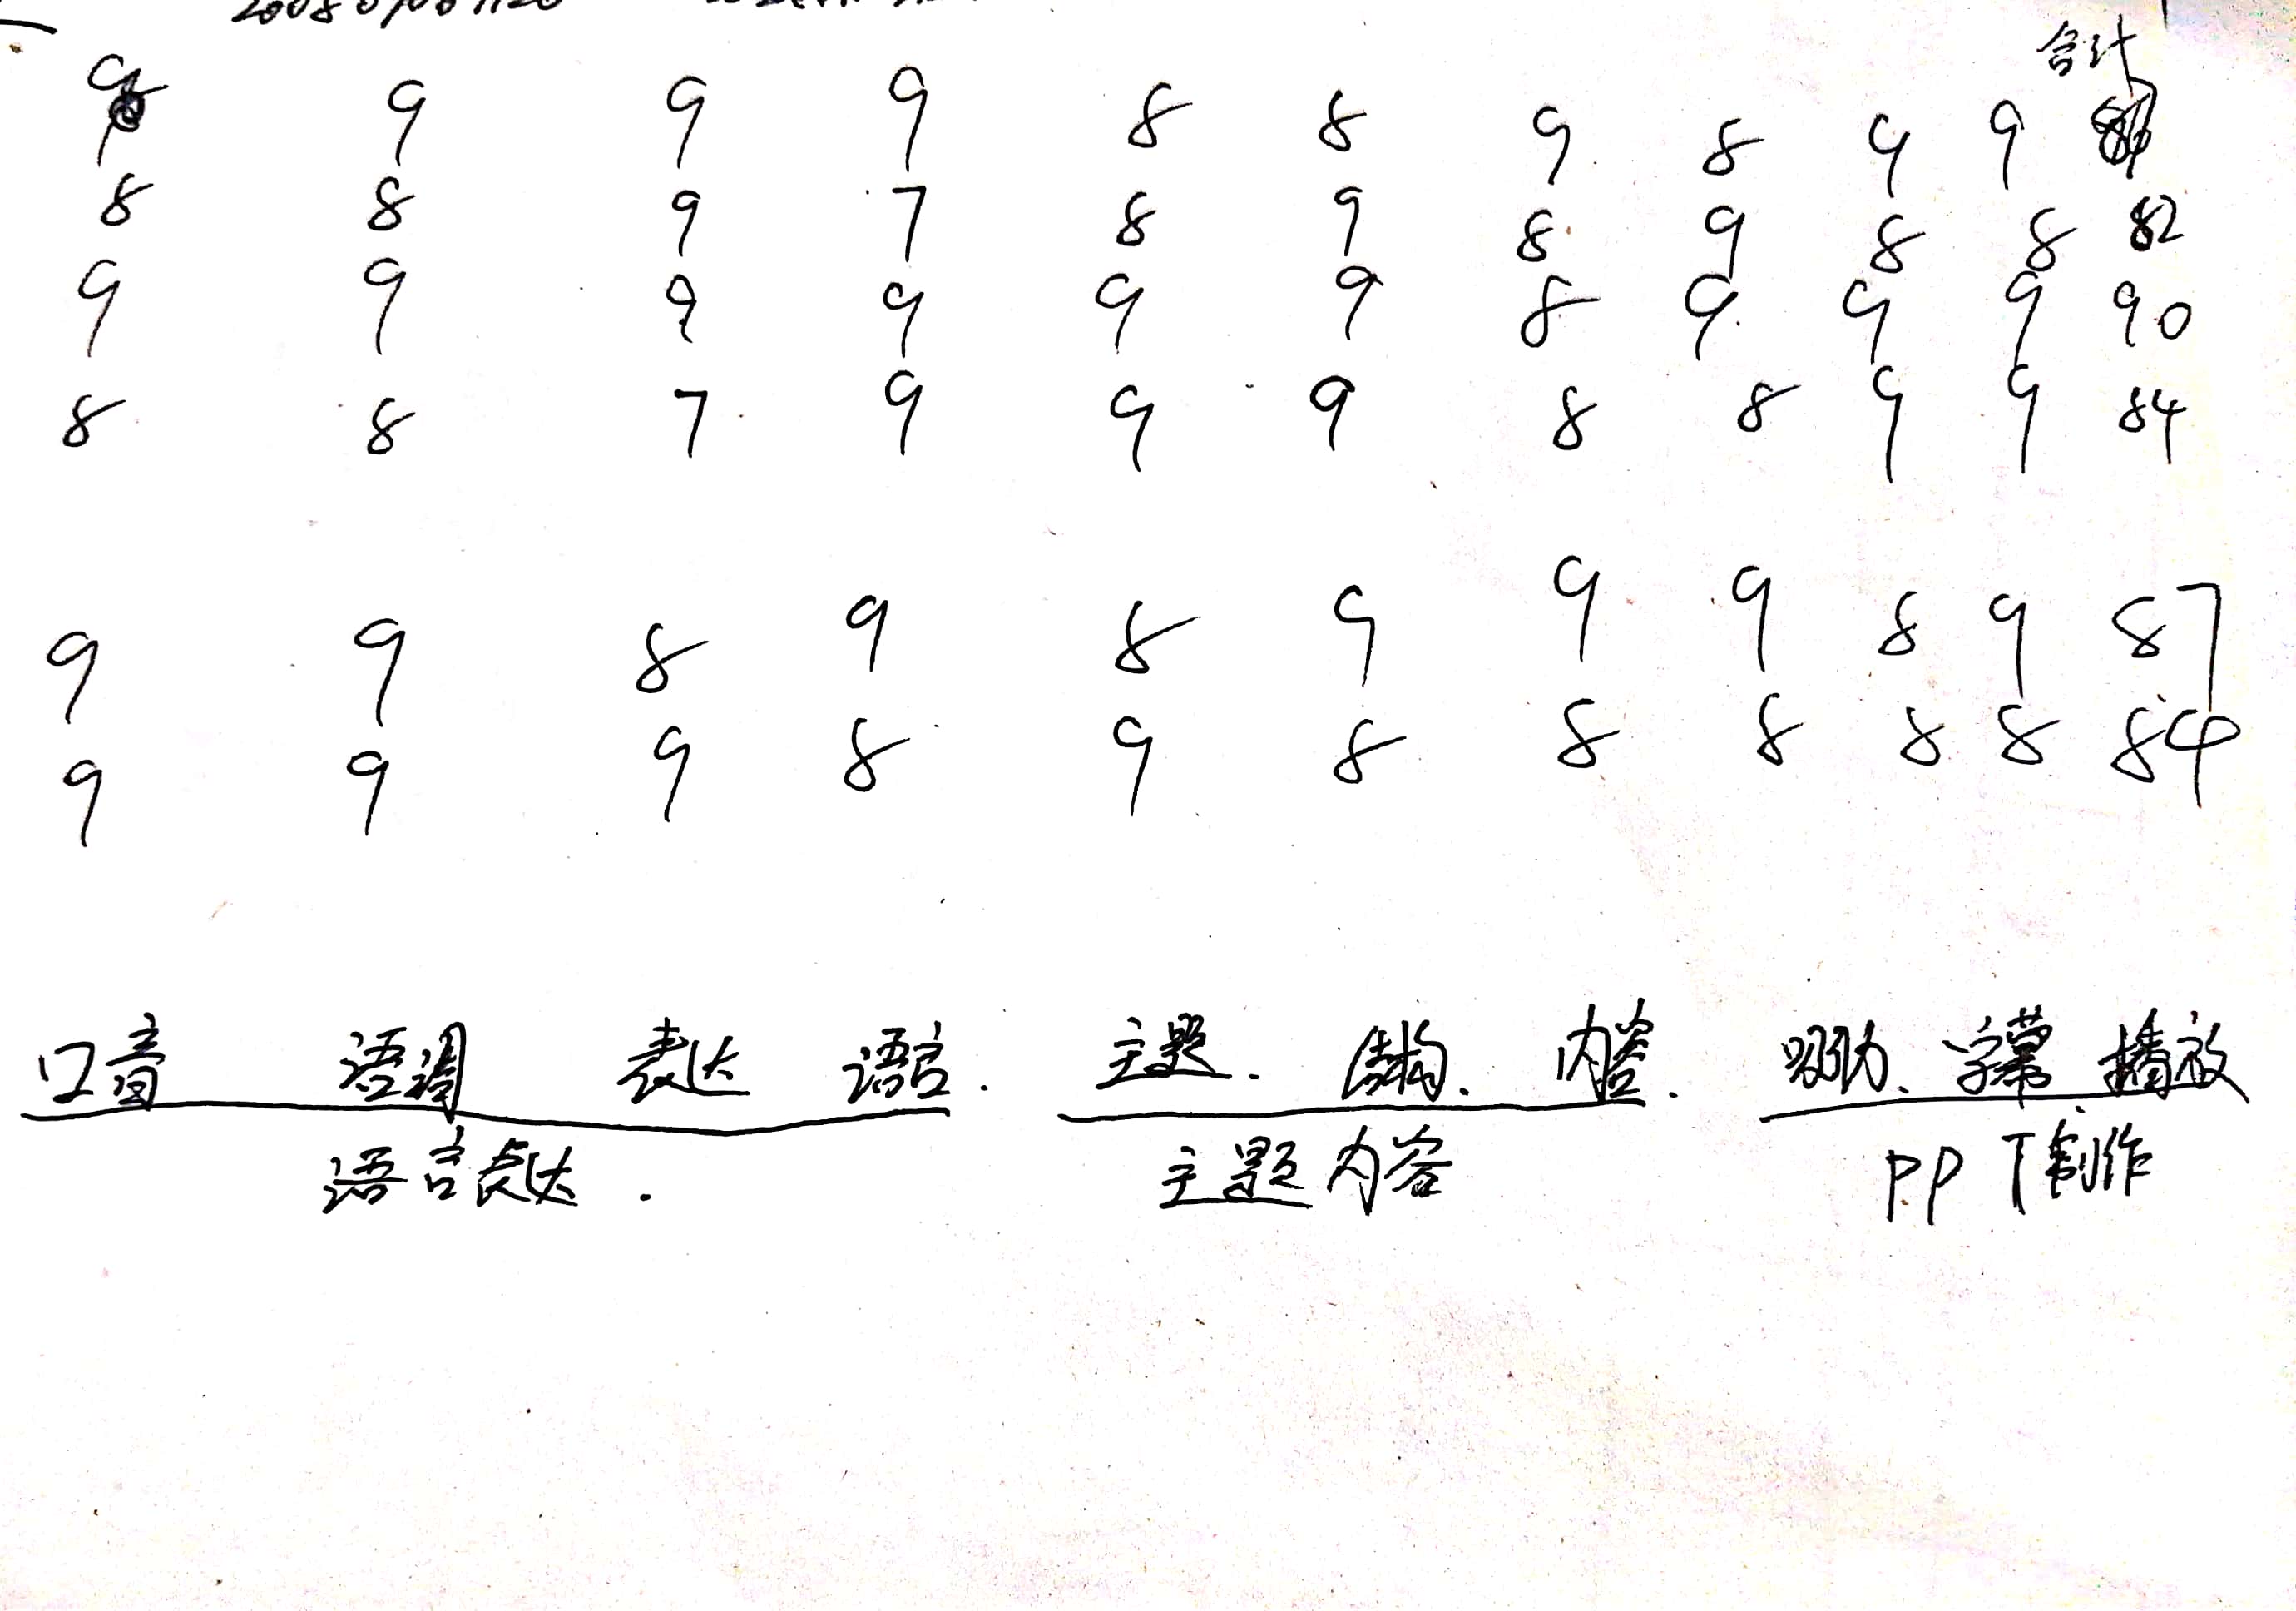 合计
9 9 9 8 8 9 8 9 9
8 8 9 7 8 9 8 9 8 8 82
9 9 9 9 9 9 8 9 9 9 90
8 8 7 9 9 9 8 8 9 9 84
9 9 8 9 8 9 9 9 8 9 87
9 9 9 8 9 8 8 8 8 8 84
口音 语调 表达 语言. 主题. 结构. 内容. 字幕 播放
语言表达. 主题内容 PPT制作